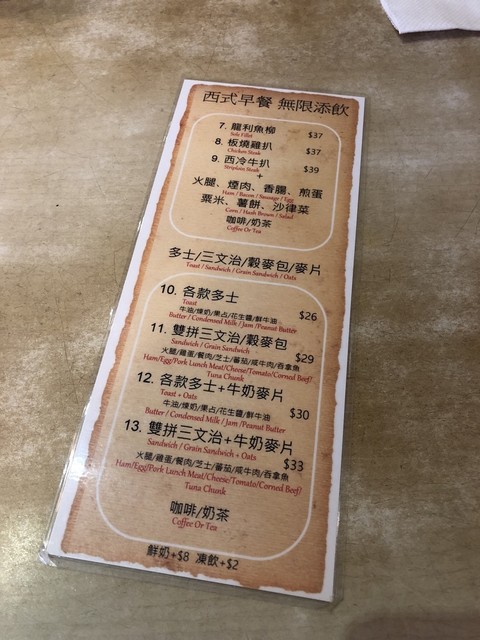 西式早餐 無限添飲
7. 龍利魚柳 $37
Sole Fillet
8. 板燒雞扒 $37
Chicken Steak
9. 西冷牛扒 $39
Striploin Steak
+
火腿、煙肉、香腸、煎蛋
Ham / Bacon / Sausage / Egg
粟米、薯餅、沙律菜
Corn / Hash Brown / Salad
咖啡/奶茶
Coffee Or Tea
多士/三文治/穀麥包/麥片
Toast / Sandwich / Grain Sandwich / Oats
10. 各款多士 $26
Toast
牛油/煉奶/果占/花生醬/鮮牛油
Butter / Condensed Milk / Jam /Peanut Butter
11. 雙拼三文治/穀麥包 $29
Sandwich / Grain Sandwich
火腿/雞蛋/餐肉/芝士/蕃茄/咸牛肉/吞拿魚
Ham/Egg/Pork Lunch Meat/Cheese/Tomato/Corned Beef/
Tuna Chunk
12. 各款多士+牛奶麥片 $30
Toast + Oats
牛油/煉奶/果占/花生醬/鮮牛油
Butter / Condensed Milk / Jam /Peanut Butter
13. 雙拼三文治+牛奶麥片 $33
Sandwich / Grain Sandwich + Oats
火腿/雞蛋/餐肉/芝士/蕃茄/咸牛肉/吞拿魚
Ham/Egg/Pork Lunch Meat/Cheese/Tomato/Corned Beef/
Tuna Chunk
咖啡/奶茶
Coffee Or Tea
鮮奶+$8 凍飲+$2